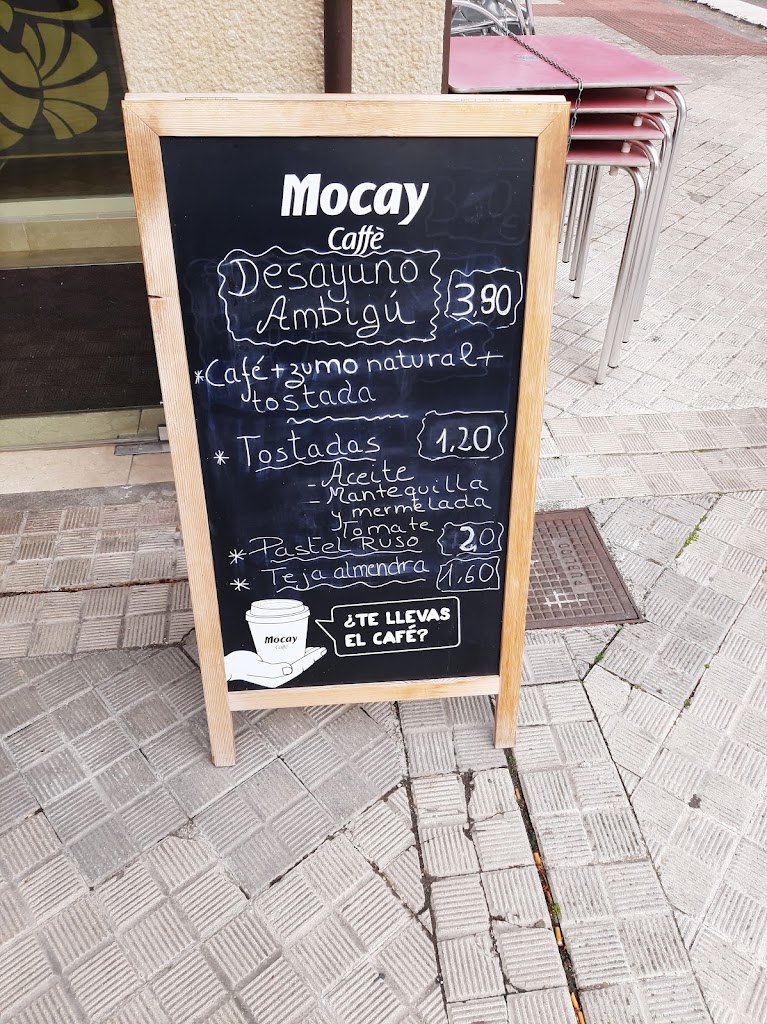 Mocay
Caffè
Desayuno
Ambigú
3,90
*Café + zumo natural +
tostada
* Tostadas
1,20
- Aceite
- Mantequilla
y mermelada
Tomate
* Pastel Ruso
2,0
* Teja almendra
1,60
Mocay
Caffè
¿TE LLEVAS
EL CAFÉ?